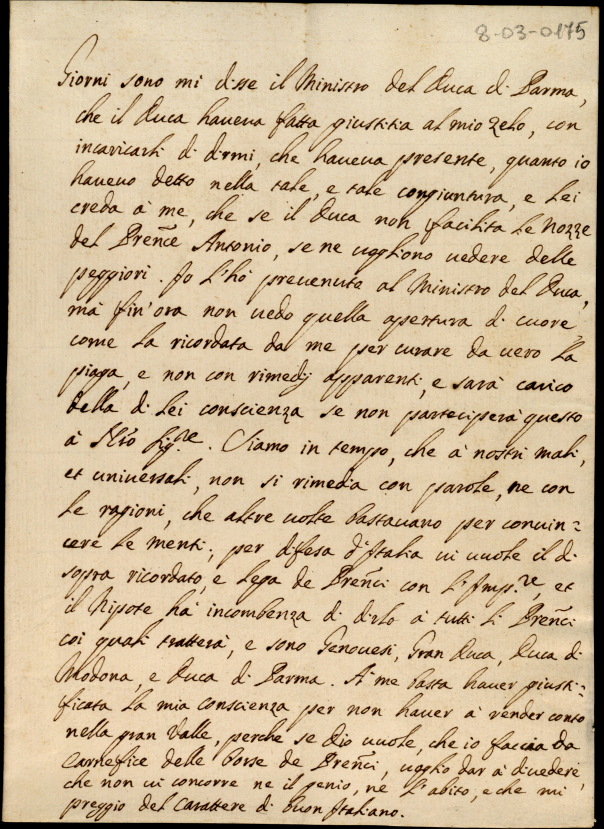 8-03-0175
Giorni sono mi disse il Ministro del Duca di Parma,
che il Duca haveva fatta giustitia al mio zelo, con
incaricarli di dirmi, che haveva presente, quanto io
havevo detto nella tale, e tale congiuntura, e lei
creda à me, che se il Duca non facilita le nozze
del Prenc̃e Antonio, se ne vogliono vedere delle
peggiori. Io l'hò prevenuta al Ministro del Duca,
mà fin'ora non vedo quella apertura di cuore
come la ricordata da me per curare da vero la
piaga, e non con rimedij apparenti, e sarà carico
della di lei conscienza se non parteciperà questo
à Sig.re. Siamo in tempo, che à nostri mali,
et universali, non si rimedia con parole, ne con
le ragioni, che altre volte bastavano per convin=
cere le menti; per difesa d'Italia vi vuole il di
sopra ricordato, e lega de Prenc̃i con l'Imp.re, et
il Nipote hà incombenza di dirlo à tutti li Prenc̃i
coi quali tratterà, e sono Genovesi, Gran Duca, Duca di
Modona, e Duca di Parma. A me basta haver giusti=
ficata la mia conscienza per non haver à render conto
nella gran Valle, perche se Dio vuole, che io faccia da
Carnefice delle borse de Prenc̃i, voglio dar à divedere,
che non vi concorre ne il genio, ne l'abito, e che mi
preggio del Carattere di buon Italiano.